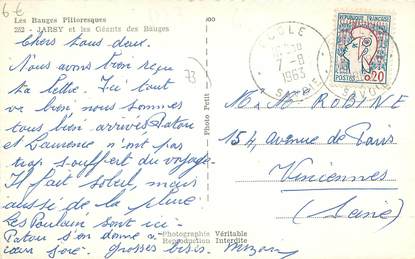 6€
Les Bauges Pittoresques
252 - JARSY et les Géants des Bauges
Chers tous deux.
Nous avons bien reçu
ta lettre. Ici tout
va bien nous sommes
tous bien arrivés Paton
et Laurence n'ont pas
trop souffert du voyage.
Il fait soleil, mais
aussi de la pluie.
Les Poulain sont ici.
Paton s'en donne à
cœur joie. Grosses bises.
73
Photo Petit
Photographie Véritable
Reproduction Interdite
ECOLE
7-8
1963
SAVOIE
REPUBLIQUE FRANÇAISE
POSTES 0,20
M. Mme ROBINE
154, avenue de Paris
Vincennes
(Seine)